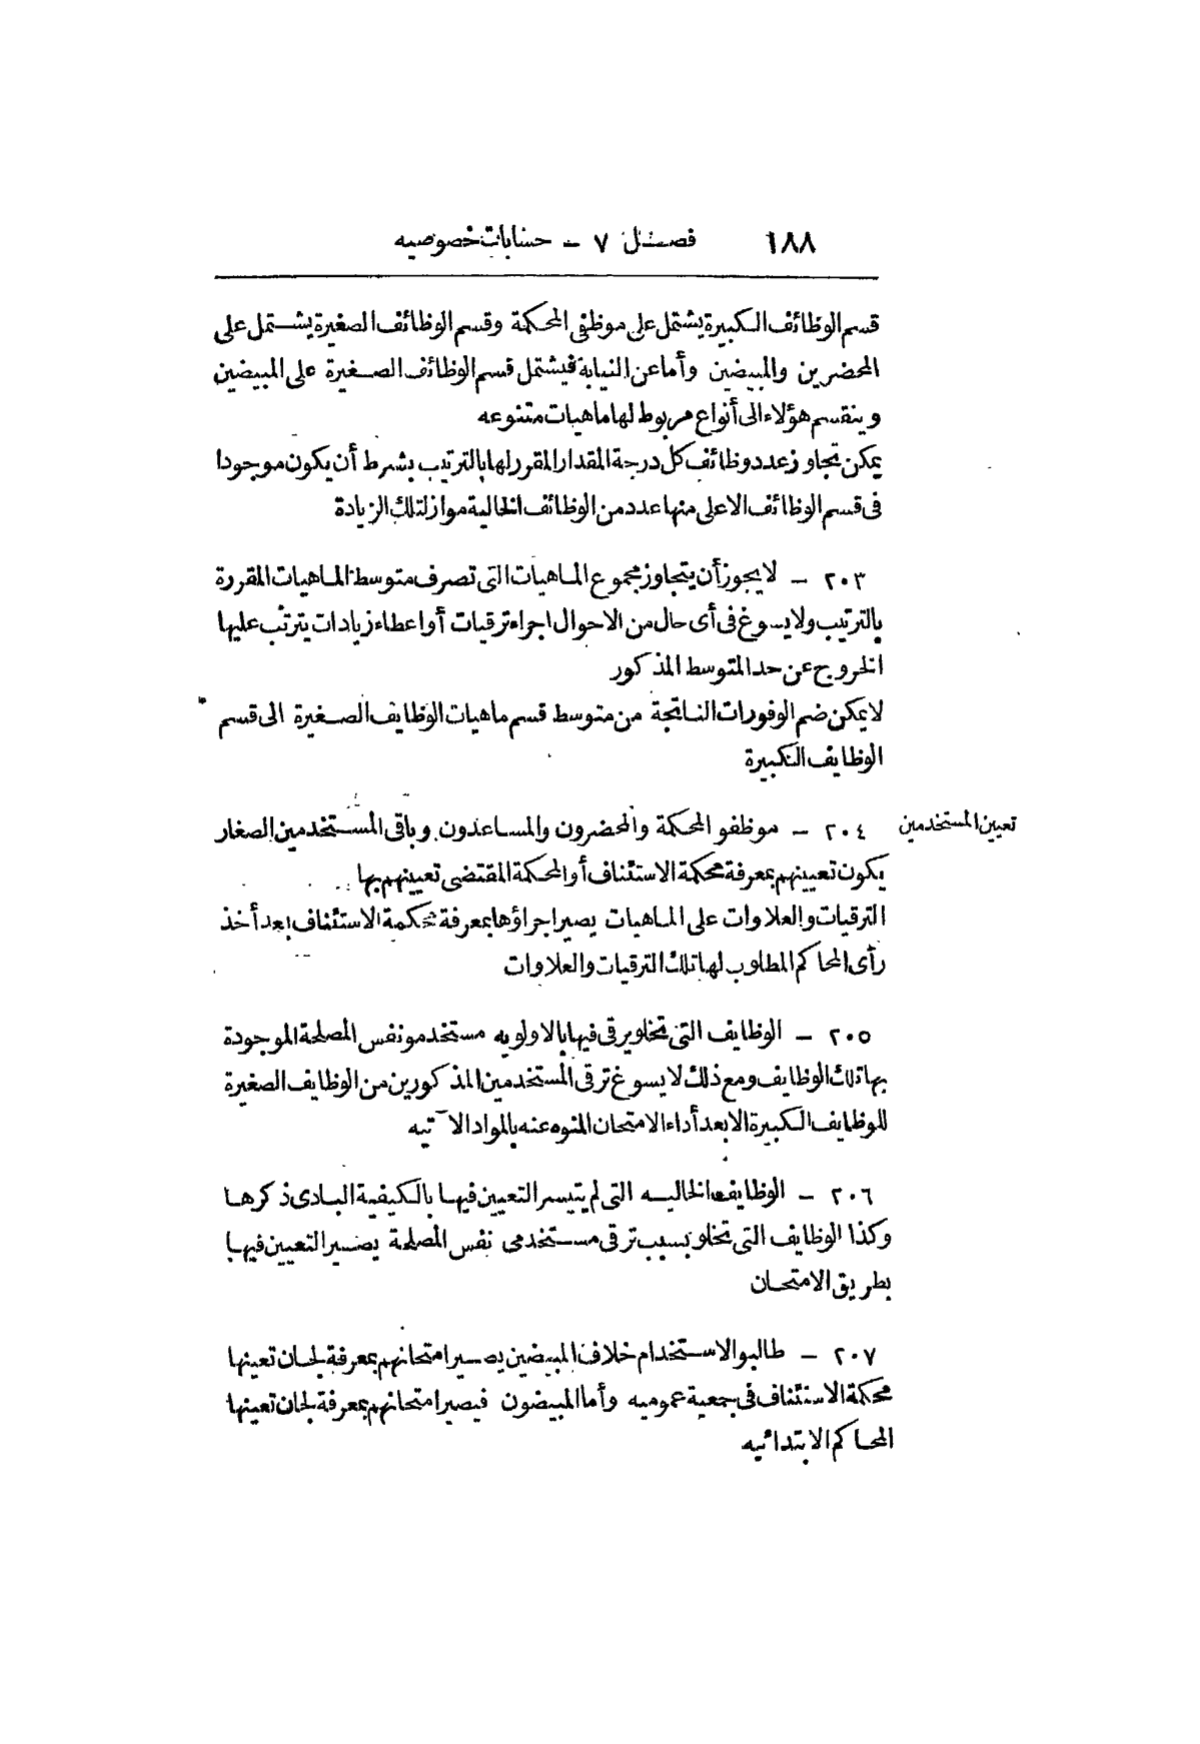 ١٨٨ فصل ٧ – حسابات خصوصيه
قسم الوظائف الكبيرة يشتمل على موظفى المحكمة وقسم الوظائف الصغيرة يشتمل على
المحضرين والمبيضين وأما عن النيابة فيشتمل قسم الوظائف الصغيرة على المبيضين
وينقسم هؤلاء الى أنواع مربوط لها ماهيات متنوعه
يمكن تجاوز عدد وظائف كل درجة المقدار المقرر لها بالترتيب بشرط أن يكون موجودا
فى قسم الوظائف الاعلى منها عدد من الوظائف الخالية مواز لتلك الزيادة
٢٠٣ – لا يجوز أن يتجاوز مجموع الماهيات التى تصرف متوسط الماهيات المقررة
بالترتيب ولا يسوغ فى أى حال من الاحوال اجراء ترقيات أو اعطاء زيادات يترتب عليها
الخروج عن حد المتوسط المذكور
لا يمكن ضم الوفورات الناتجة من متوسط قسم ماهيات الوظايف الصغيرة الى قسم
الوظايف الكبيرة
تعيين المستخدمين
٢٠٤ – موظفو المحكمة والمحضرون والمساعدون وباقى المستخدمين الصغار
يكون تعيينهم بمعرفة محكمة الاستئناف أو المحكمة المقتضى تعيينهم بها
الترقيات والعلاوات على الماهيات يصير اجراؤها بمعرفة محكمة الاستئناف بعد أخذ
رأى المحاكم المطلوب لها تلك الترقيات والعلاوات
٢٠٥ – الوظايف التى تخلو يرقى فيها بالاولويه مستخدمو نفس المصلحة الموجودة
بها تلك الوظايف ومع ذلك لا يسوغ ترقى المستخدمين المذكورين من الوظايف الصغيرة
للوظايف الكبيرة الا بعد أداء الامتحان المنوه عنه بالمواد الآتيه
٢٠٦ – الوظايف الخاليه التى لم يتيسر التعيين فيها بالكيفية البادى ذكرها
وكذا الوظايف التى تخلو بسبب ترقى مستخدمى نفس المصلحة يصير التعيين فيها
بطريق الامتحان
٢٠٧ – طالبو الاستخدام خلاف المبيضين يصير امتحانهم بمعرفة لجان تعينها
محكمة الاستئناف فى جمعية عموميه وأما المبيضون فيصير امتحانهم بمعرفة لجان تعينها
المحاكم الابتدائيه